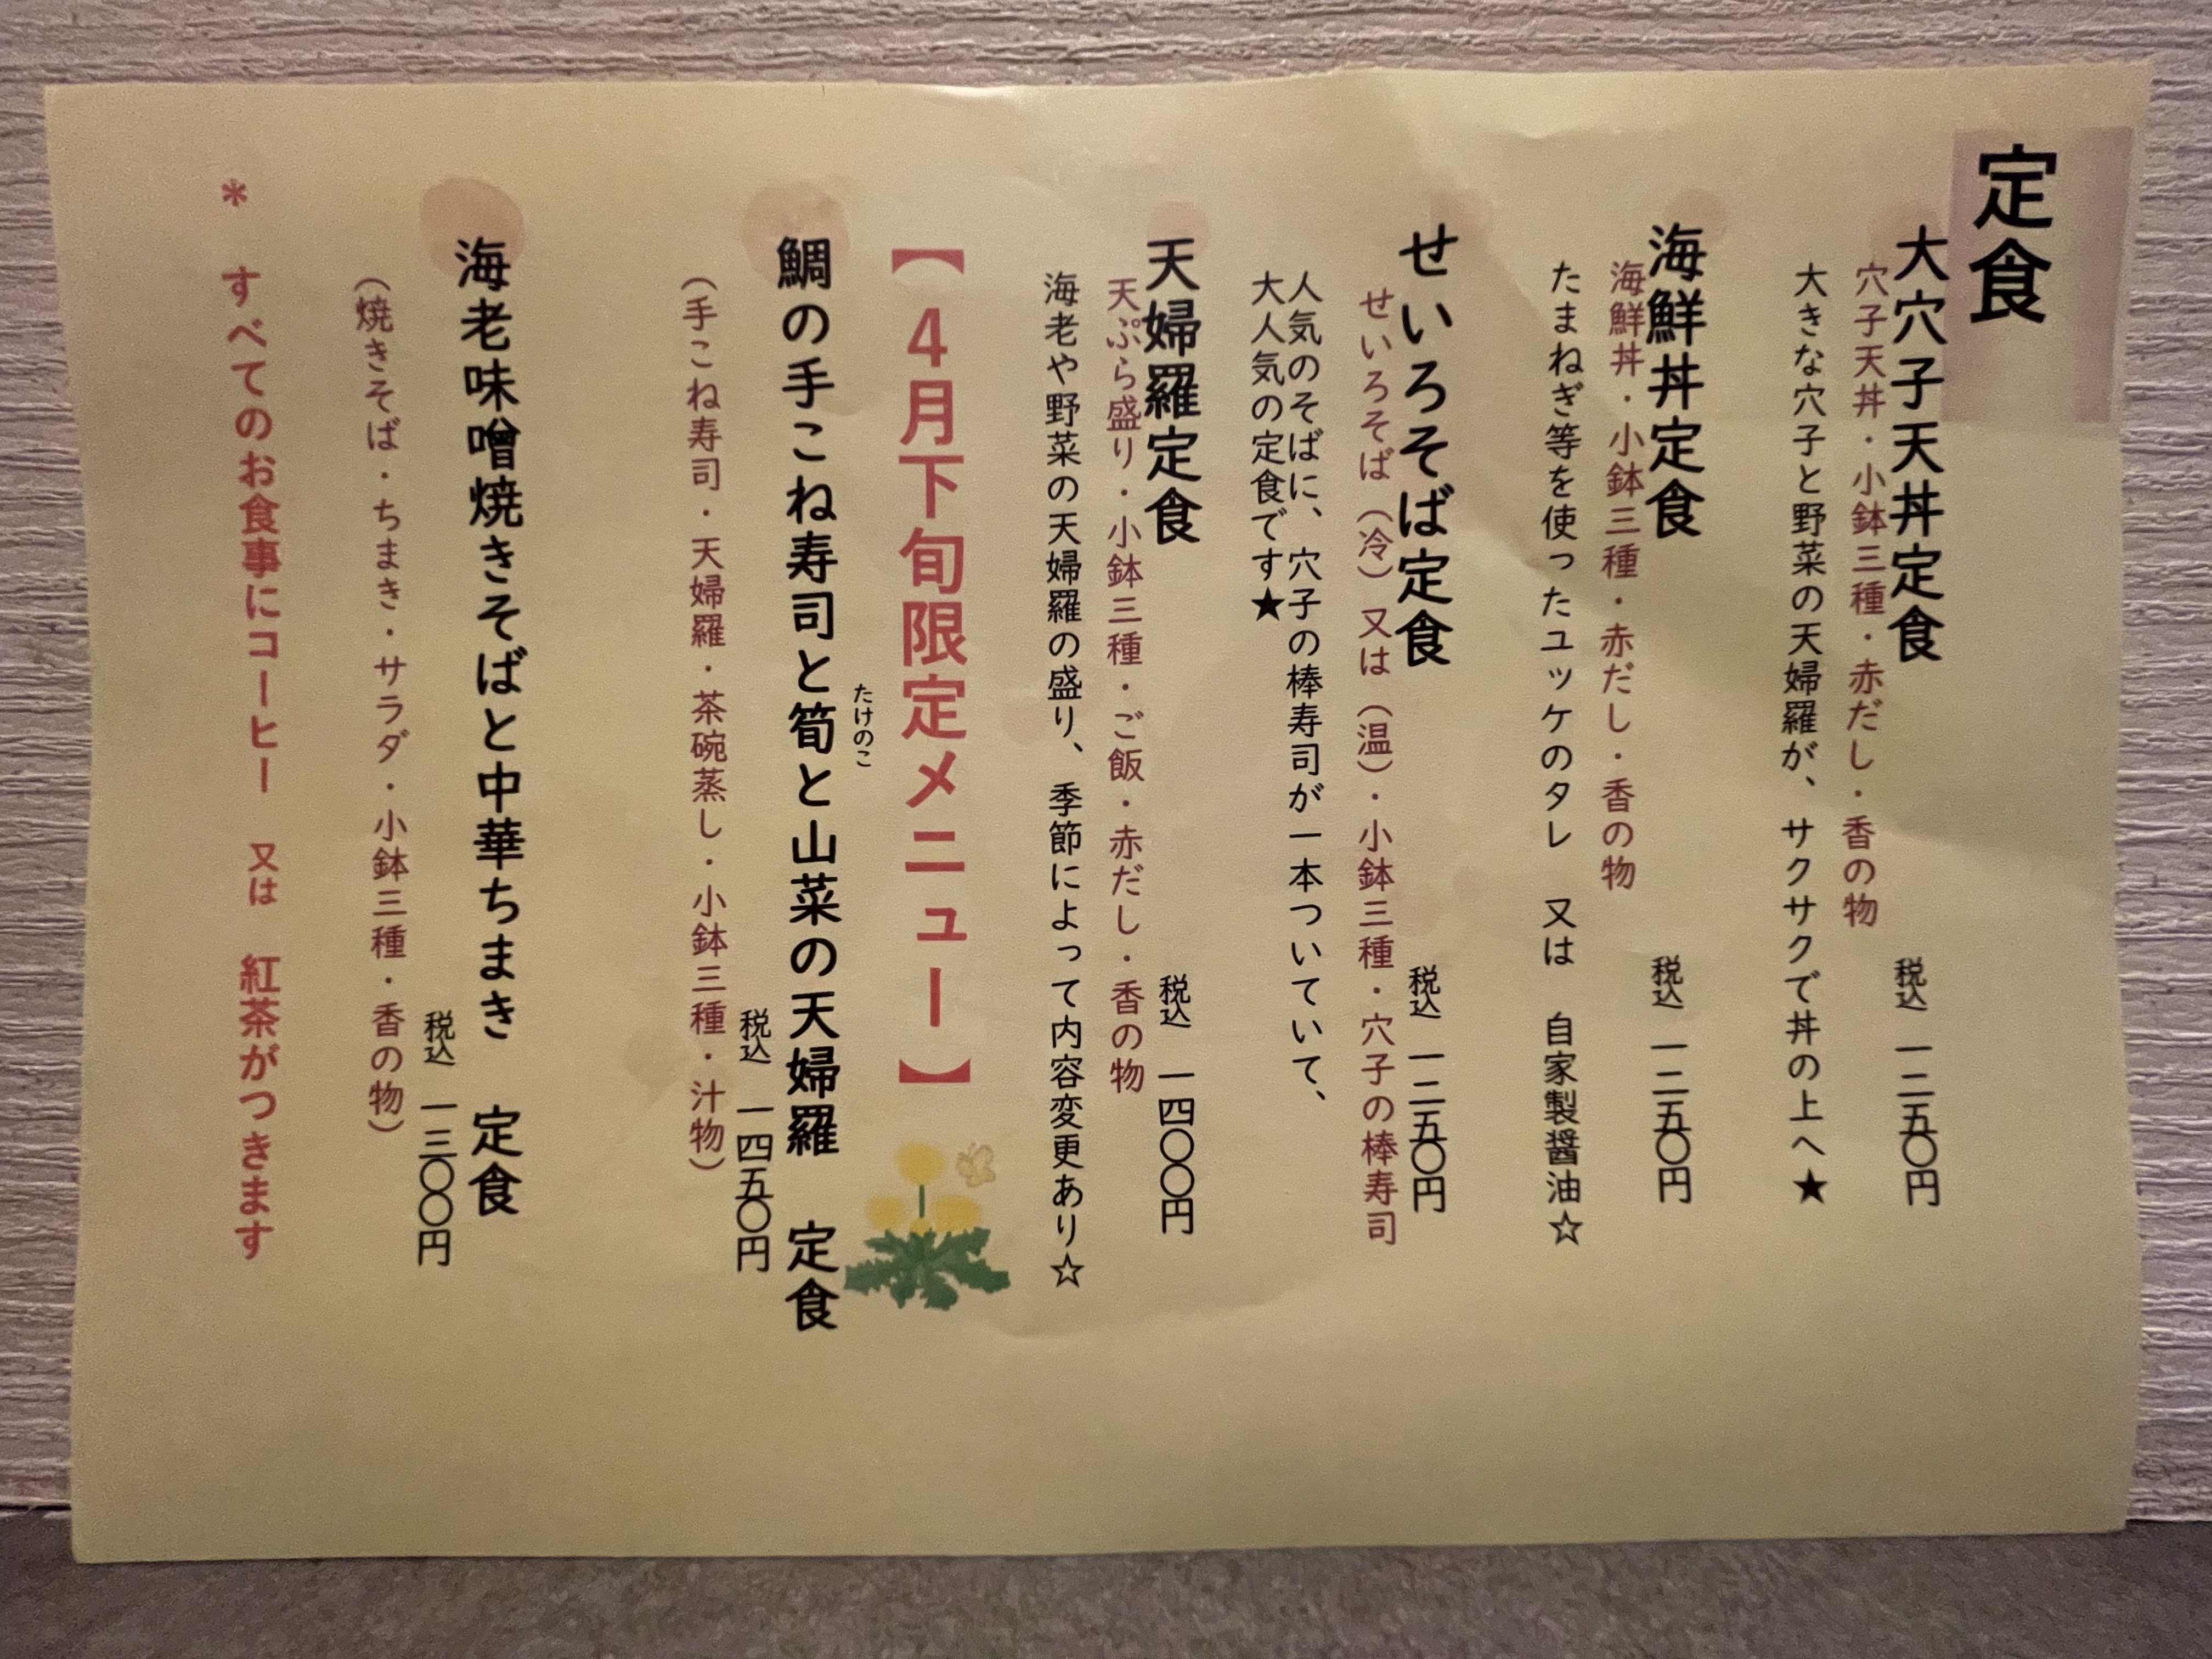 定食
大穴子天丼定食
税込 一二五〇円
穴子天丼・小鉢三種・赤だし・香の物
大きな穴子と野菜の天婦羅が、サクサクで丼の上へ★
海鮮丼定食
税込 一二五〇円
海鮮丼・小鉢三種・赤だし・香の物
たまねぎ等を使ったユッケのタレ 又は 自家製醤油☆
せいろそば定食
税込 一二五〇円
せいろそば（冷）又は（温）・小鉢三種・穴子の棒寿司
人気のそばに、穴子の棒寿司が一本ついていて、
大人気の定食です★
天婦羅定食
税込 一四〇〇円
天ぷら盛り・小鉢三種・ご飯・赤だし・香の物
海老や野菜の天婦羅の盛り、季節によって内容変更あり☆
【4月下旬限定メニュー】
たけのこ
鯛の手こね寿司と筍と山菜の天婦羅 定食
税込 一四五〇円
（手こね寿司・天婦羅・茶碗蒸し・小鉢三種・汁物）
海老味噌焼きそばと中華ちまき 定食
税込 一三〇〇円
（焼きそば・ちまき・サラダ・小鉢三種・香の物）
* すべてのお食事にコーヒー 又は 紅茶がつきます